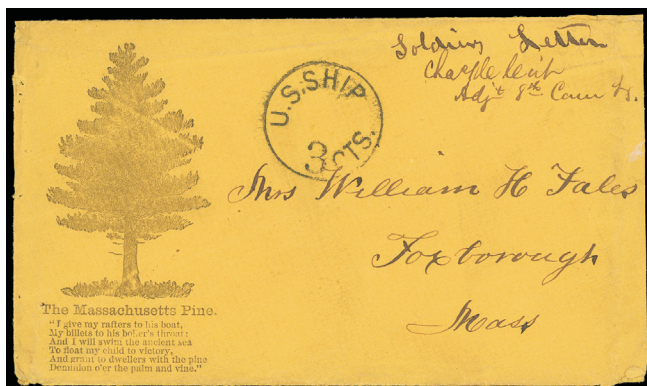 Soldiers Letter
Adjt 8th Conn Vs.
U.S. SHIP
3 CTS.
Mrs William H Fales
Foxborough
Mass
The Massachusetts Pine.
"I give my rafters to his boat,
My billets to his boiler's throat;
And I will swim the ancient sea
To float my child to victory,
And grant to dwellers with the pine
Dominion o'er the palm and vine."